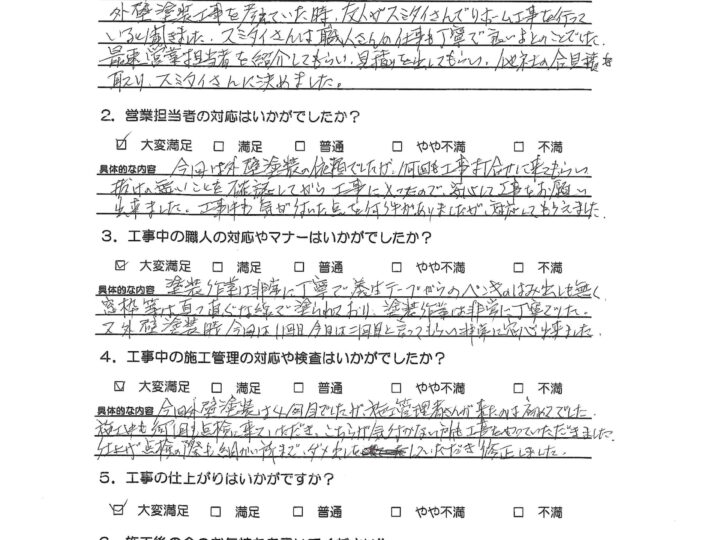 外壁塗装工事を考えていた時、友人がスミタイさんでリホーム工事を行って
いると聞きました。スミタイさんは職人さんの仕事も丁寧で良いよとのことでした。
最来営業担当者を紹介してもらい、見積りを出してもらい、他社の合見積も
取り、スミタイさんに決めました。
2．営業担当者の対応はいかがでしたか？
☑ 大変満足 □ 満足 □ 普通 □ やや不満 □ 不満
具体的な内容 今回は外壁塗装の依頼でしたが、何回も工事打合せに来てもらい
抜けの無いことを確認してから工事に入ったので、安心して工事をお願い
出来ました。工事中も気が付いた点を何件かありましたが、対応してもらえました。
3．工事中の職人の対応やマナーはいかがでしたか？
☑ 大変満足 □ 満足 □ 普通 □ やや不満 □ 不満
具体的な内容 塗装作業は非常に丁寧で養生テープからのペンキのはみ出しも無く
窓枠等は真っ直ぐな線で塗られており、塗装作業は非常に丁寧でした。
又外壁塗装時今回は1回目今日は二回目と言ってもらい非常に安心出来ました。
4．工事中の施工管理の対応や検査はいかがでしたか？
☑ 大変満足 □ 満足 □ 普通 □ やや不満 □ 不満
具体的な内容 今回外壁塗装は4回目でしたが、施工管理者さんが来たのは初めてでした。
施工中も何回も点検に来ていただき、こちらが気付かない所も工事をやっていただきました。
仕上げ点検の際も細かい所まで、ダメ出しをしていただき修正しました。
5．工事の仕上がりはいかがですか？
☑ 大変満足 □ 満足 □ 普通 □ やや不満 □ 不満